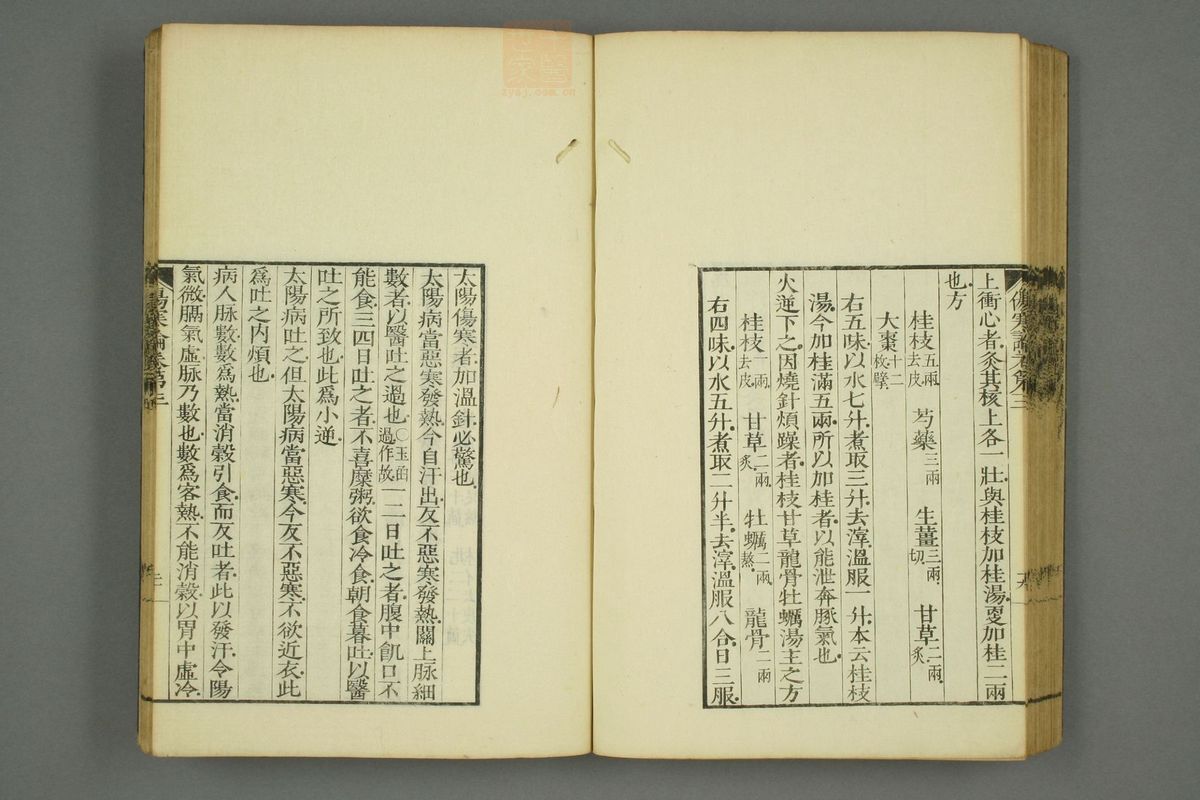 上衝心者灸其核上各一壯與桂枝加桂湯更加桂二兩
也方
桂枝五兩去皮 芍藥三兩 生薑三兩切 甘草二兩炙
大棗十二枚擘
右五味以水七升煮取三升去滓溫服一升本云桂枝
湯今加桂滿五兩所以加桂者以能泄奔豚氣也
火逆下之因燒針煩躁者桂枝甘草龍骨牡蠣湯主之方
桂枝一兩去皮 甘草二兩炙 牡蠣二兩熬 龍骨二兩
右四味以水五升煮取二升半去滓溫服八合日三服
太陽傷寒者加溫針必驚也
太陽病當惡寒發熱今自汗出反不惡寒發熱關上脉細
數者以醫吐之過也○玉函過作故一二日吐之者腹中飢口不
能食三四日吐之者不喜糜粥欲食冷食朝食暮吐以醫
吐之所致也此爲小逆
太陽病吐之但太陽病當惡寒今反不惡寒不欲近衣此
爲吐之內煩也
病人脉數數爲熱當消穀引食而反吐者此以發汗令陽
氣微膈氣虛脉乃數也數爲客熱不能消穀以胃中虛冷
傷寒論卷第三
zysj.com.cn